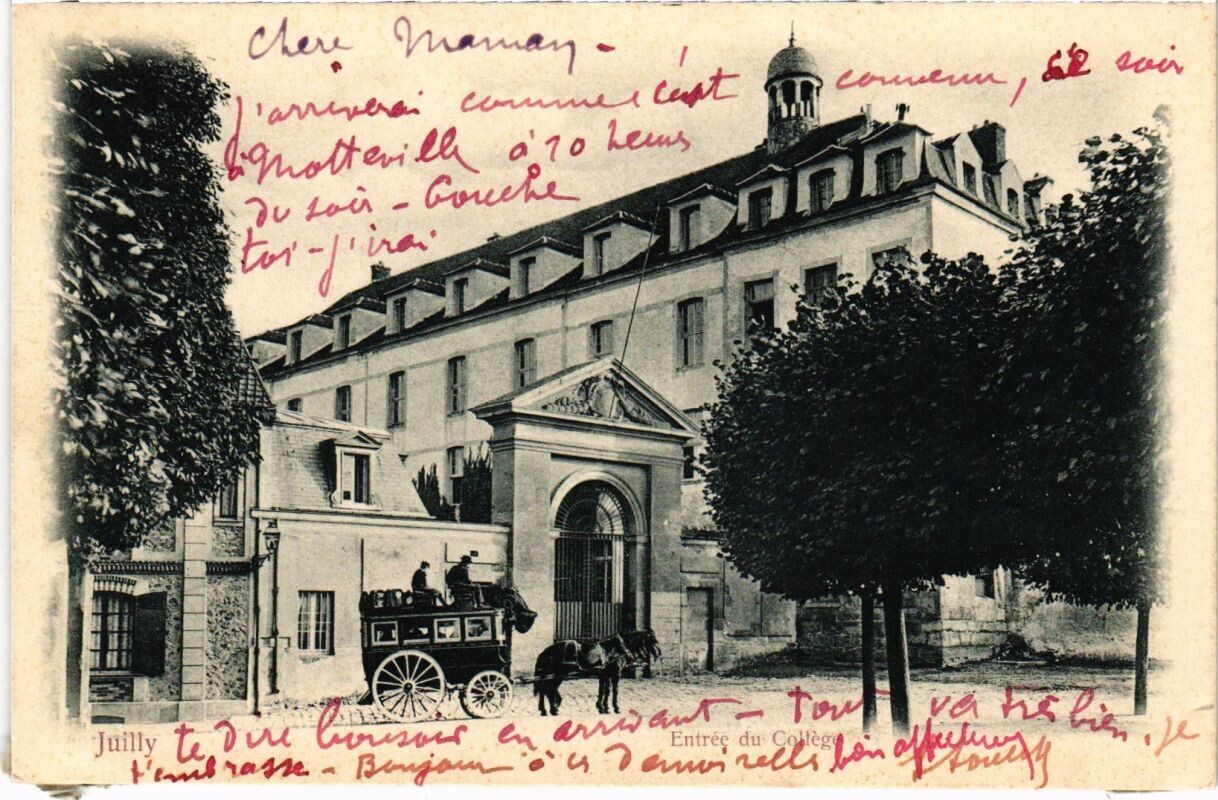 Chere Maman -
j'arriverai comme c'est convenu, ce soir
à Motteville à 10 heures
du soir - Couche
toi - j'irai
te dire bonsoir en arrivant - Tout va très bien, je
t'embrasse - Bonjour à ces demoiselles bien affectueux
Juilly
Entrée du Collège